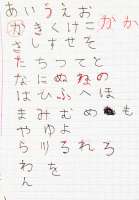 あいうえお かか
かきくけこ
さしすせそ
たちつてと
なにぬねの
はひふへほ
まみむめも
やゆよ
らりるれろ
わを
ん